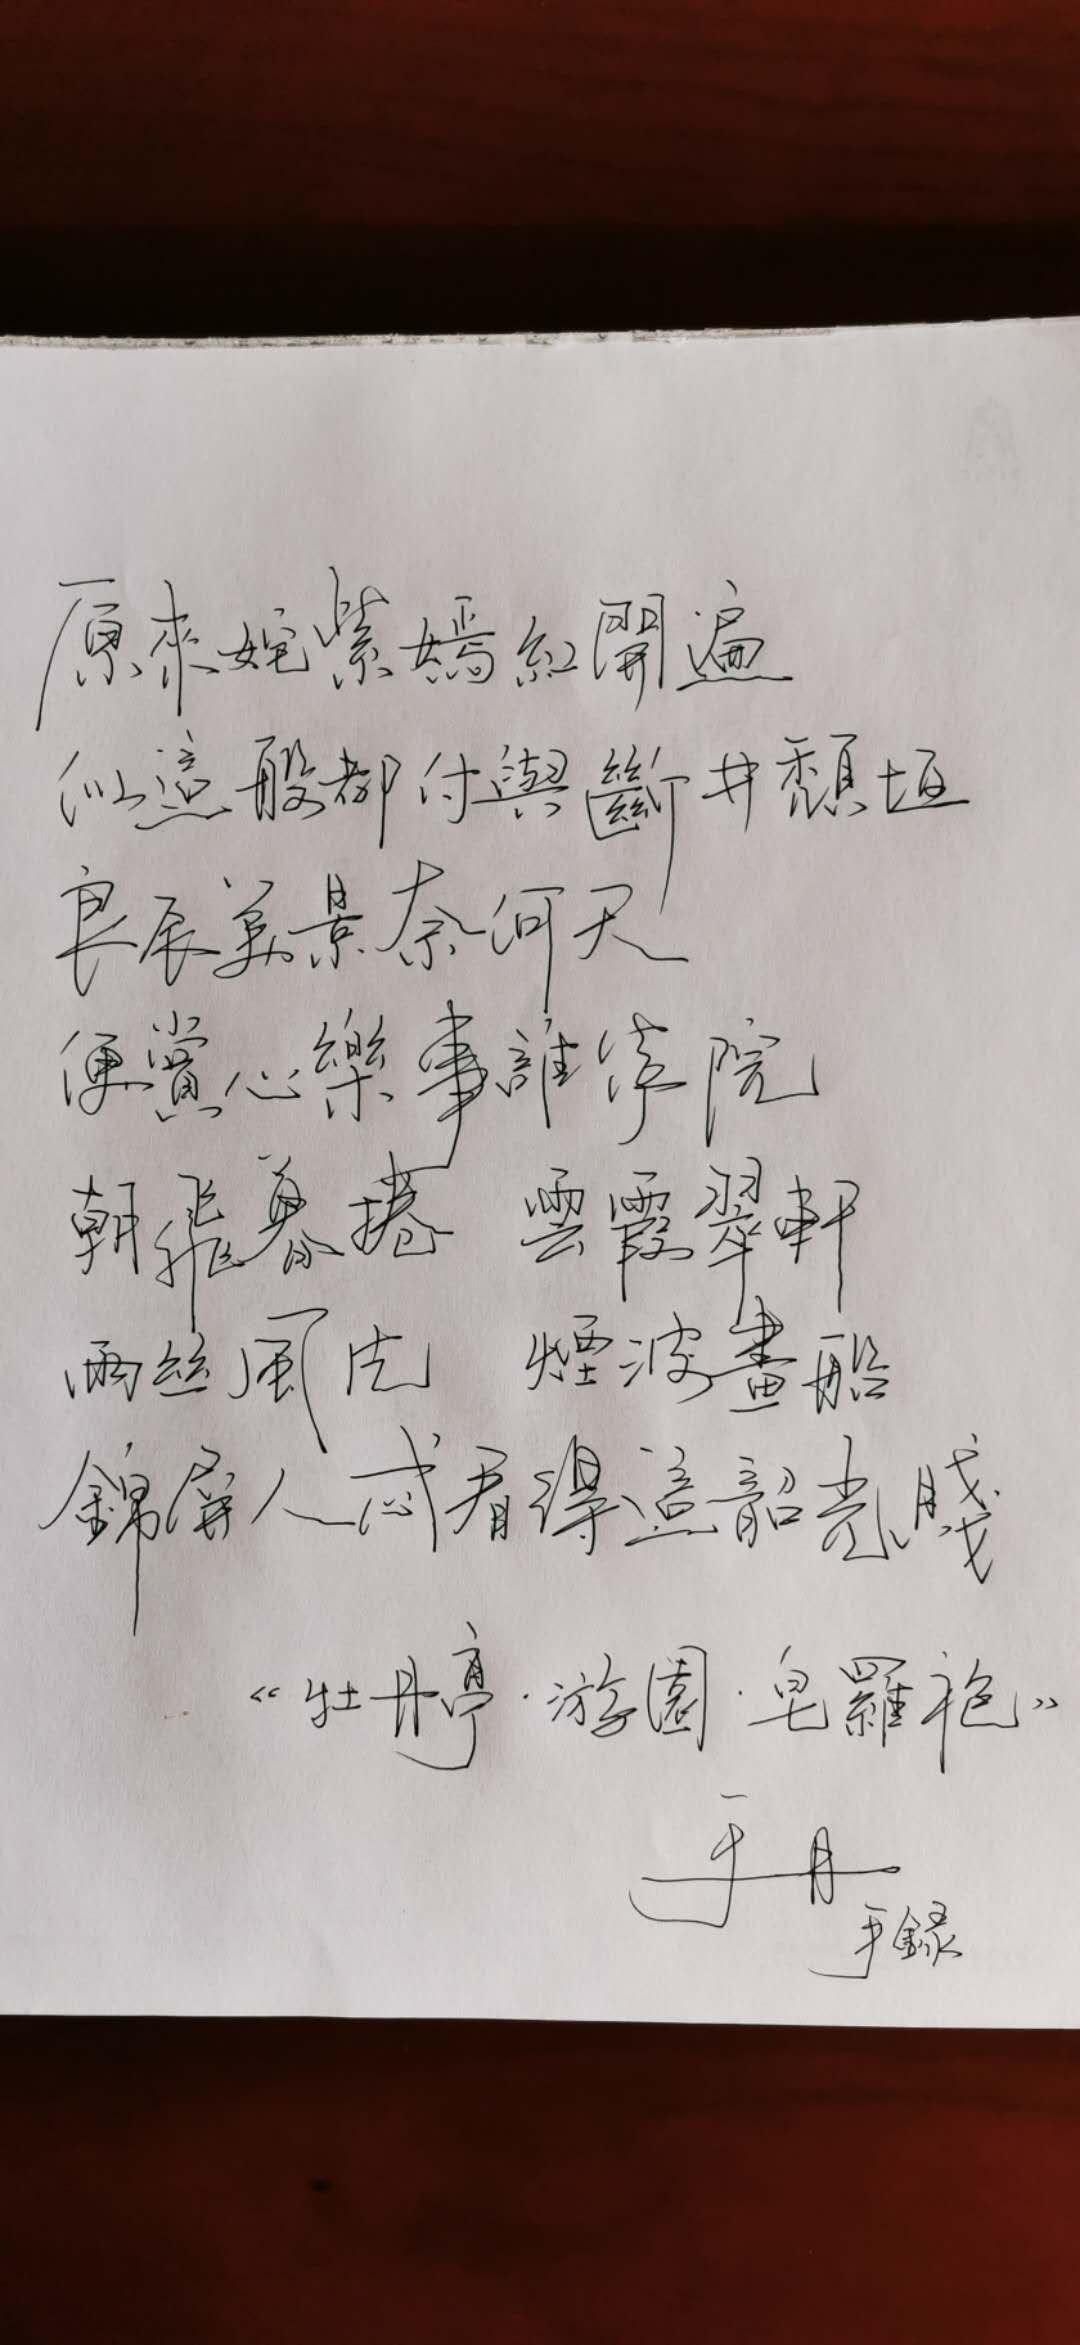 原來姹紫嫣紅開遍
似這般都付與斷井頹垣
良辰美景奈何天
便賞心樂事誰家院
朝飛暮捲 雲霞翠軒
雨絲風片 煙波畫船
錦屏人忒看得這韶光賤
《牡丹亭·游園·皂羅袍》
于丹
手錄